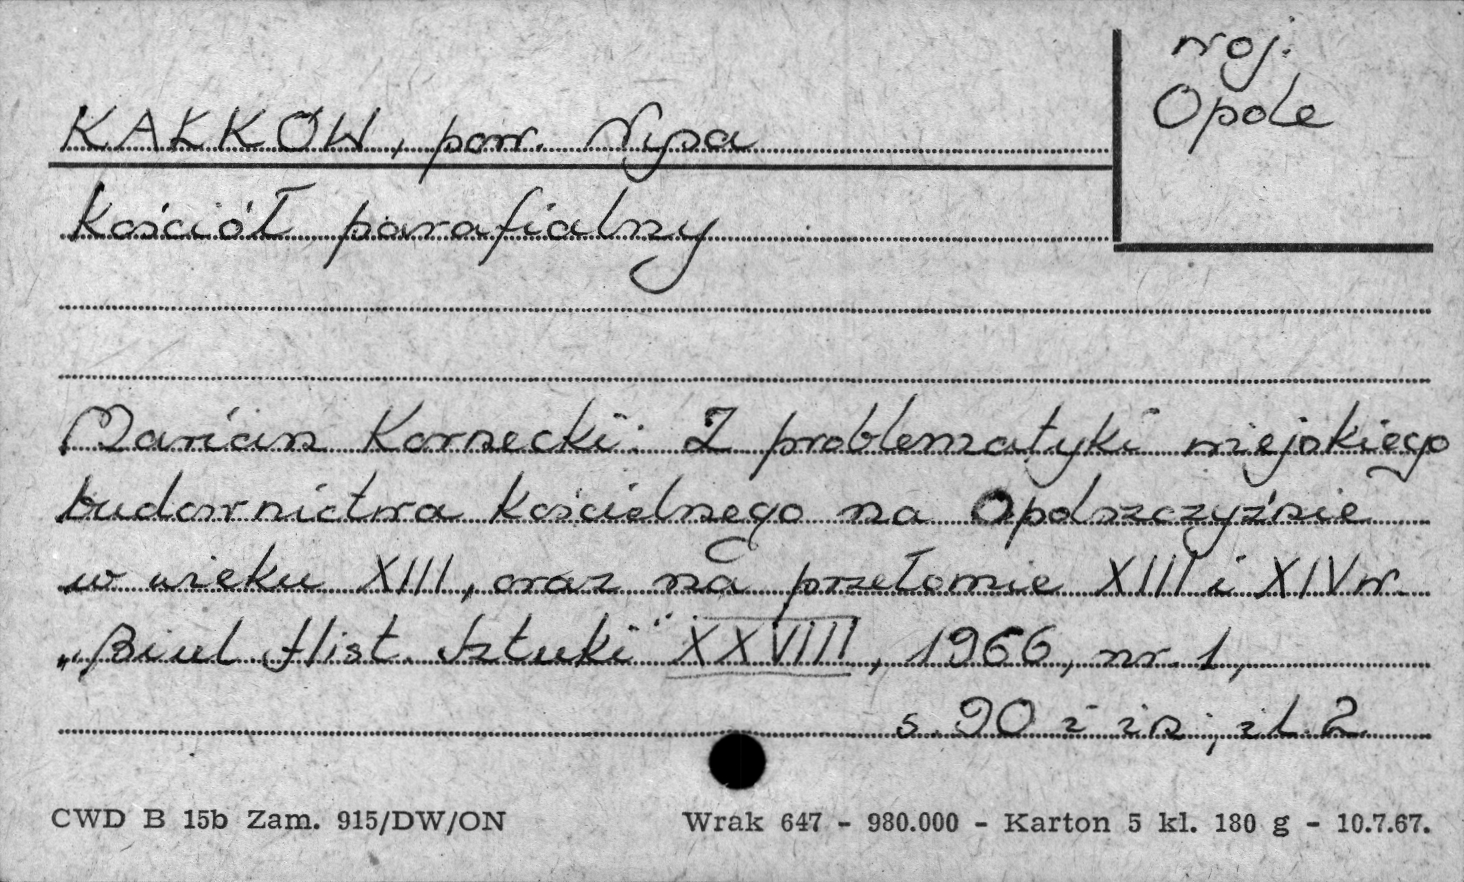 woj.
Opole
KAŁKÓW, pow. Nysa
Kościół parafialny
Marian Kornecki: Z problematyki wiejskiego
budownictwa kościelnego na Opolszczyźnie
w wieku XIII, oraz na przełomie XIII i XIV w.
„Biul Hist. Sztuki" XXVIII, 1966, nr. 1,
s. 90 i in; il. 2
CWD B 15b Zam. 915/DW/ON Wrak 647 - 980.000 - Karton 5 kl. 180 g - 10.7.67.